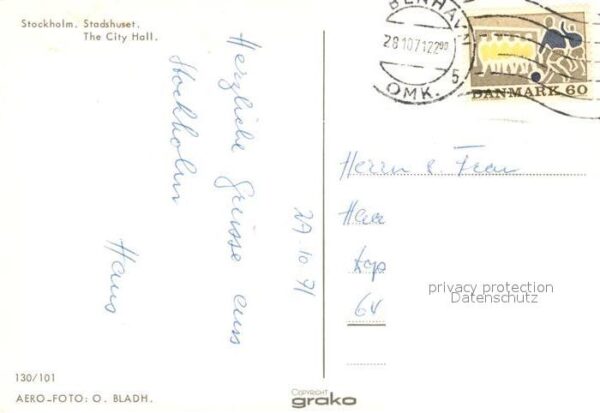 Stockholm. Stadshuset.
The City Hall.
Herzliche Grüsse aus
Stockholm
Hans
29.10.71
BENHAVN
28.10.71.22
5
OMK.
DANMARK 60
Herrn &. Frau
privacy protection
Datenschutz
130/101
AERO-FOTO: O. BLADH.
COPYRIGHT
grako